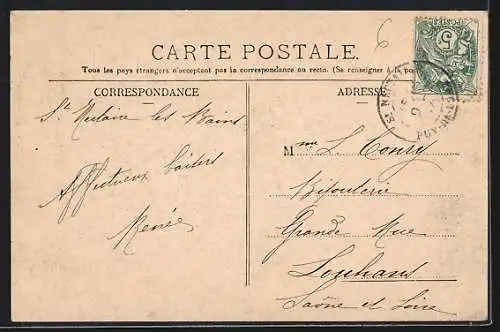 6
CARTE POSTALE.
Tous les pays étrangers n'acceptent pas la correspondance au recto. (Se renseigner à la
CORRESPONDANCE
St Nectaire les Bains
Affectueux baisers
Renée
ADRESSE
Mme L. Coury
Bijouterie
Grande Rue
Louhans
Saône et Loire
5
PUY-DE-DOME